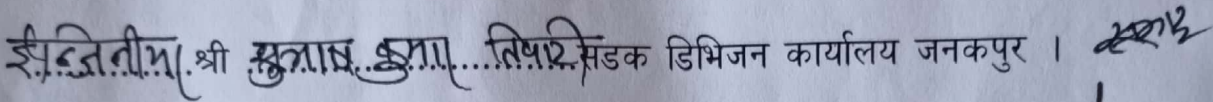 ईन्जिनीयर श्री सुभाष कुमार तिवारी सडक डिभिजन कार्यालय जनकपुर ।